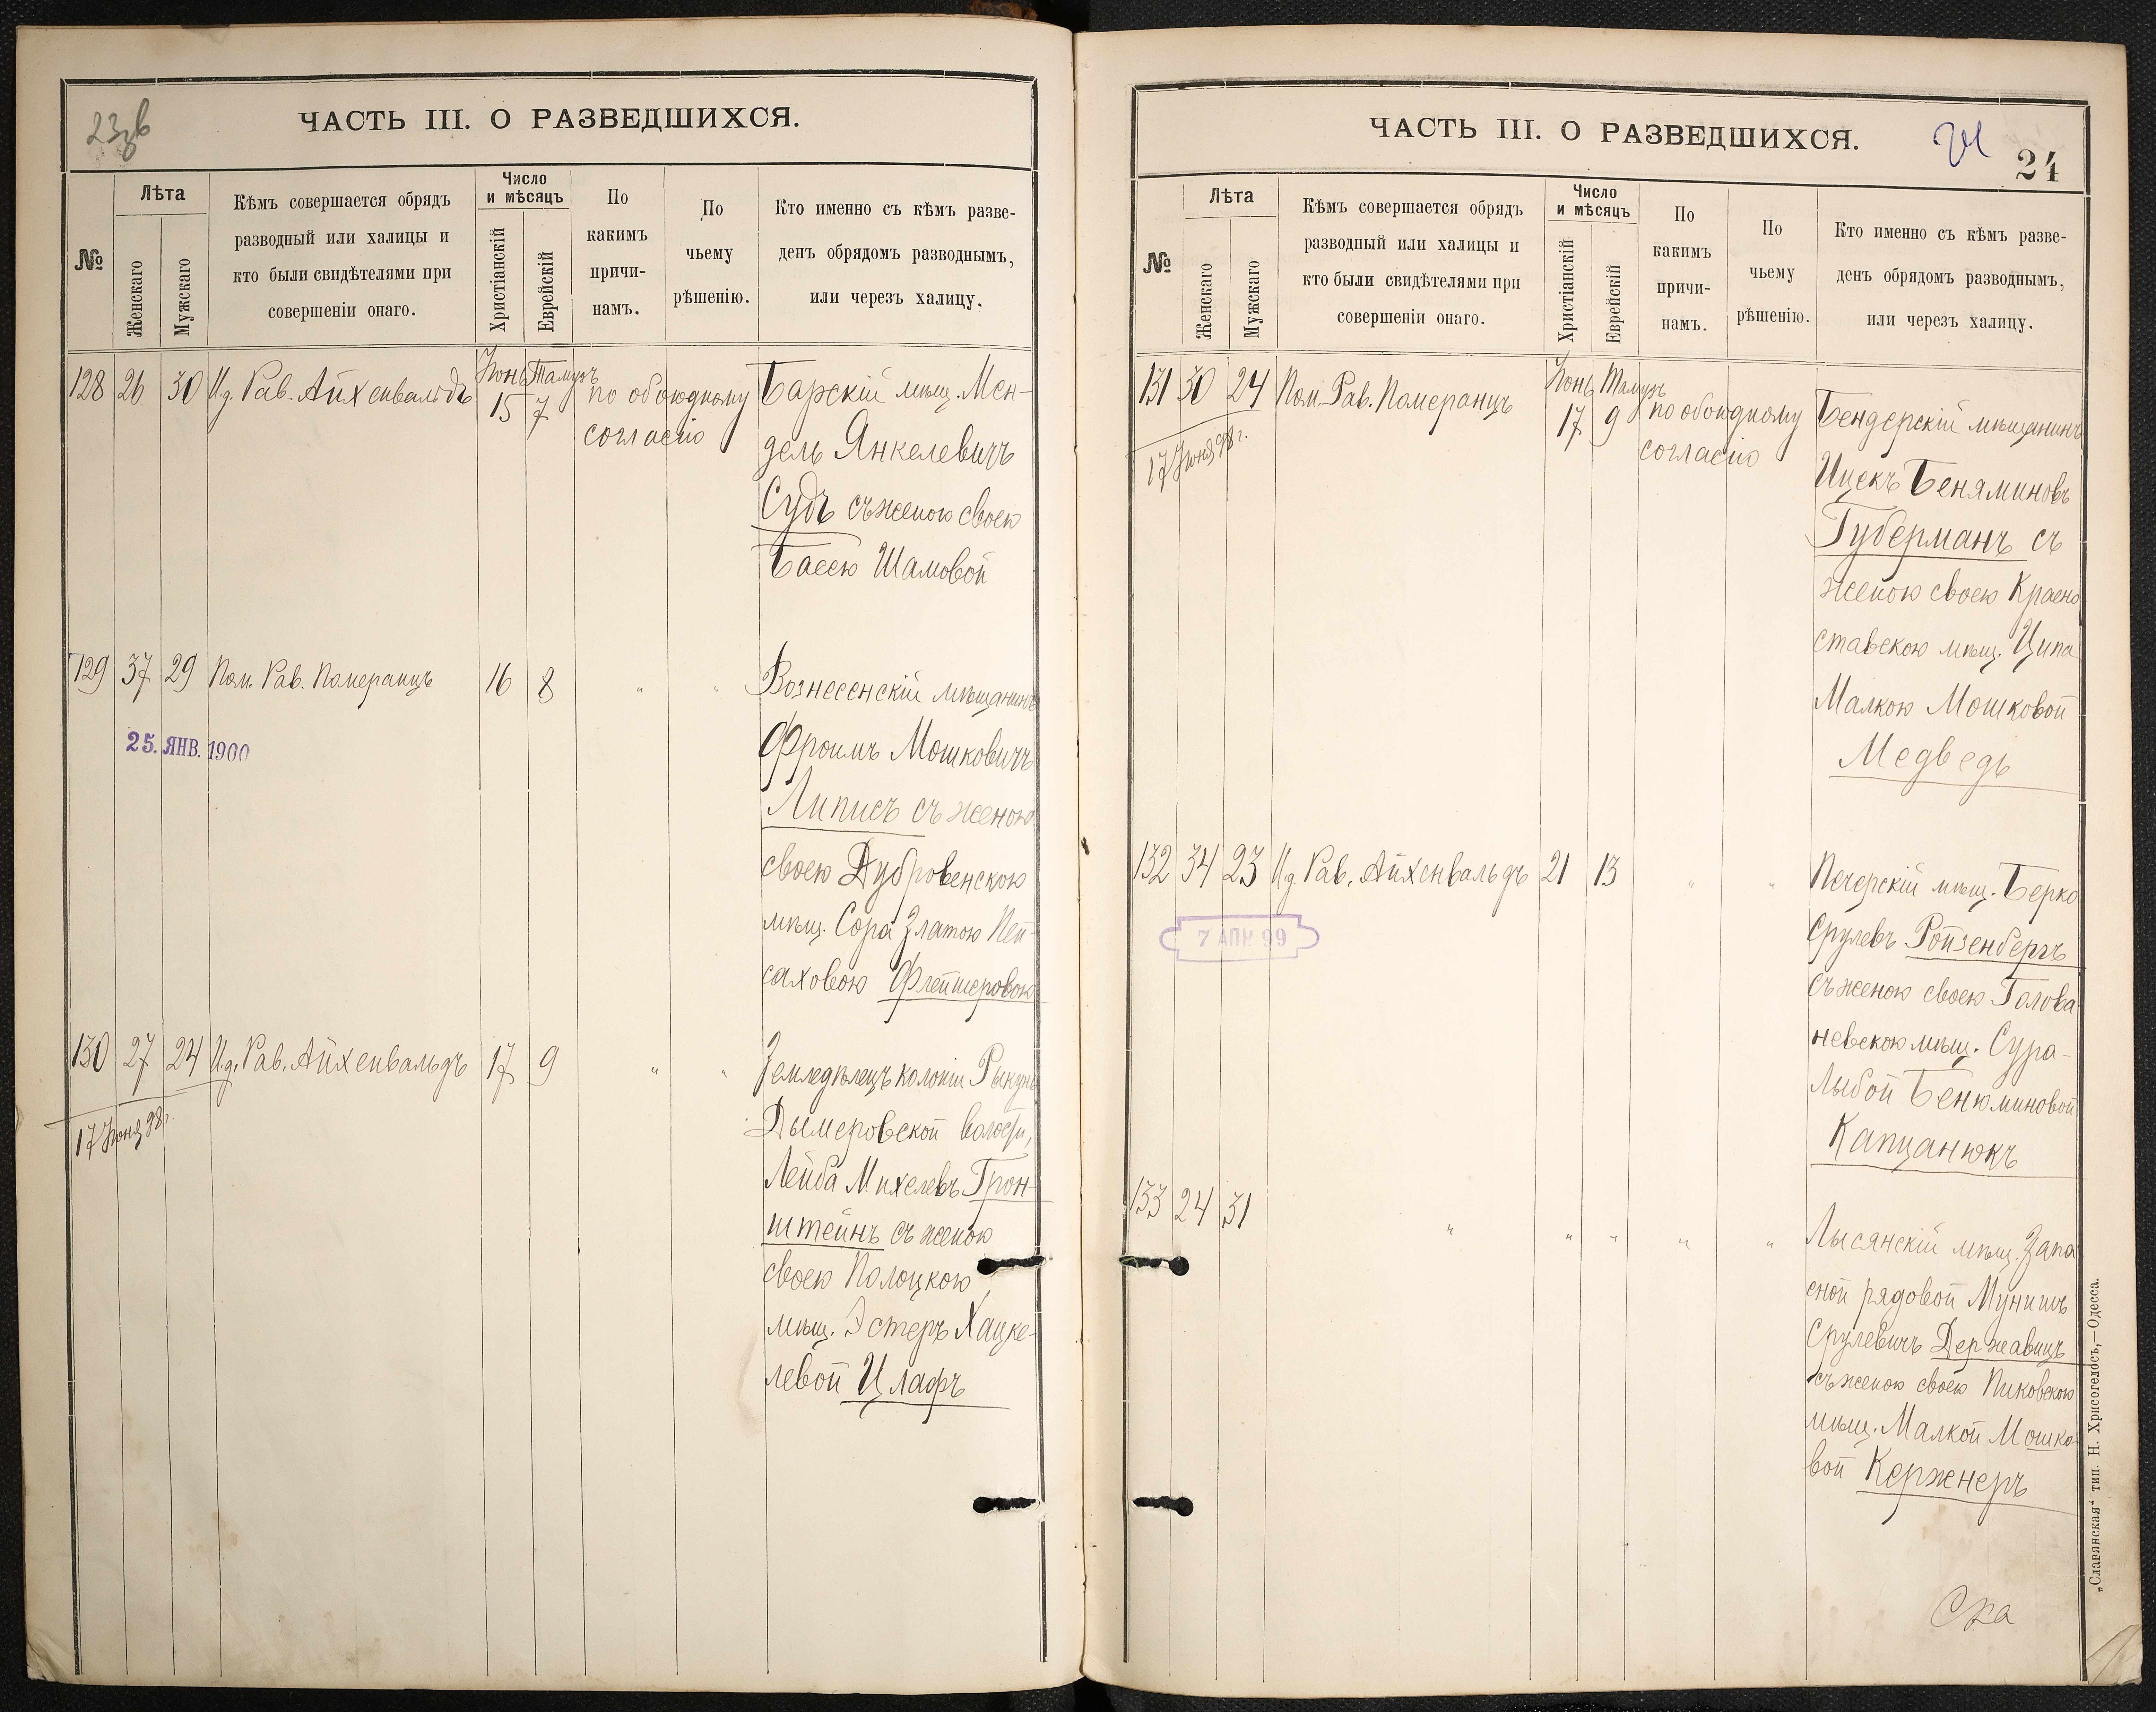 23зв
ЧАСТЬ III. О РАЗВЕДШИХСЯ.
№
Лѣта
Женскаго
Мужскаго
Кѣмъ совершается обрядъ
разводный или халицы и
кто были свидѣтелями при
совершеніи онаго.
Число
и мѣсяцъ
Христіанскій
Еврейскій
По
какимъ
причи-
намъ.
По
чьему
рѣшенію.
Кто именно съ кѣмъ разве-
денъ обрядомъ разводнымъ,
или черезъ халицу.
128 26 30 И.д. Рав. Айхенвальдъ Іюнь 15 Тамузъ 7 по обоюдному
согласію
Барскій мѣщ. Мен-
дель Янкелевичъ
Судъ съ женою своею
Басею Шамовой
129 37 29 Пом. Рав. Померанцъ 16 8 " "
25. ЯНВ. 1900
Вознесенскій мѣщанинъ
Фроимъ Мошковичъ
Липисъ съ женою
своею Дубровенскою
мѣщ. Сора Златою Пей-
саховою Флейшеровою
130 27 24 И.д. Рав. Айхенвальдъ 17 9 " "
17 Іюня 98 г.
Земледѣлецъ колоніи Рыкунь
Дымеровской волости,
Лейба Михелевъ Грон-
штейнъ съ женою
своею Полоцкою
мѣщ. Эстеръ Хацке-
левой Цлафъ
ЧАСТЬ III. О РАЗВЕДШИХСЯ.
24
24
№
Лѣта
Женскаго
Мужскаго
Кѣмъ совершается обрядъ
разводный или халицы и
кто были свидѣтелями при
совершеніи онаго.
Число
и мѣсяцъ
Христіанскій
Еврейскій
По
какимъ
причи-
намъ.
По
чьему
рѣшенію.
Кто именно съ кѣмъ разве-
денъ обрядомъ разводнымъ,
или черезъ халицу.
131 30 24 Пом. Рав. Померанцъ Іюнь 17 Тамузъ 9 по обоюдному
согласію
17 Іюня 98 г.
Бендерскій мѣщанинъ
Ицекъ Беняминовъ
Губерманъ съ
женою своею Красно
ставскою мѣщ. Ципа
Малкою Мошковой
Медведь
132 34 23 И.д. Рав. Айхенвальдъ 21 13 " "
7 АПР 99
Печерскій мѣщ. Берко
Срулевъ Ройзенбергъ
съ женою своею Голова-
невскою мѣщ. Сура-
Лыбой Бенюминовой
Капцанюкъ
133 24 31 " " " " "
Лысянскій мѣщ. Запа
сной рядовой Мунишъ
Срулевичъ Державицъ
съ женою своею Пиковскою
мѣщ. Малкой Мошко-
вой Кержнеръ
„Славянская“ тип. Н. Хрисогелосъ,—Одесса.